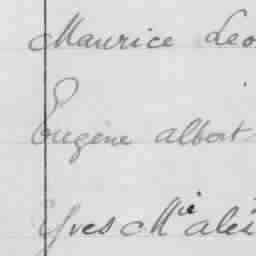 Maurice Leo
Eugène albert
Yves Mie alexi